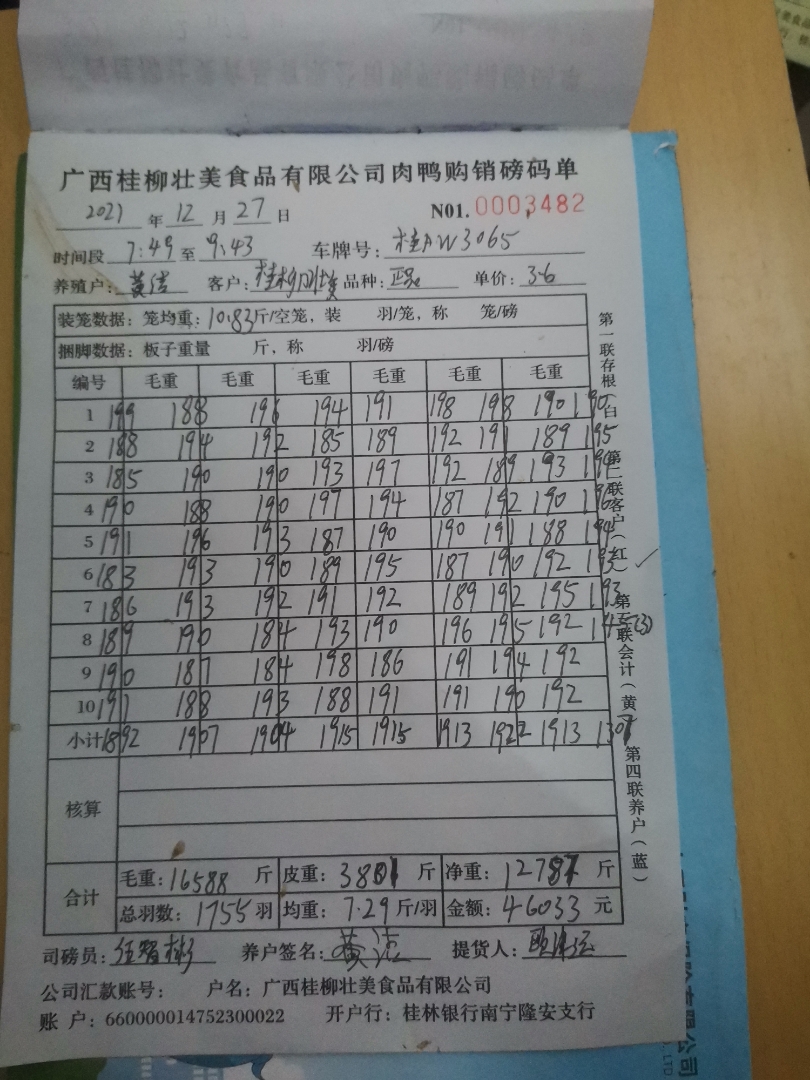 广西桂柳壮美食品有限公司肉鸭购销磅码单
2021 年 12 月 27 日 N01. 0003482
时间段 7:49 至 9:43 车牌号: 桂AW3065
养殖户: 黄洁 客户: 桂柳壮美 品种: 正品 单价: 3.6
装笼数据: 笼均重: 10.83 斤/空笼, 装 羽/笼, 称 笼/磅
捆脚数据: 板子重量 斤, 称 羽/磅
编号 毛重 毛重 毛重 毛重 毛重 毛重
1 199 188 196 194 191 198 198 190 190
2 188 194 192 185 189 192 191 189 195
3 185 190 190 193 197 192 189 193
4 190 188 190 197 194 187 192 190 196
5 191 196 193 187 190 190 191 188 194
6 183 193 190 189 195 187 190 192 193
7 186 193 192 191 192 189 192 195 193
8 189 190 184 193 190 196 195 192 145(3)
9 190 187 184 198 186 191 194 192
10 191 188 193 188 191 191 190 192
小计 1892 1907 1904 1915 1915 1913 1922 1913 1307
核算
合计 毛重: 16588 斤 皮重: 3801 斤 净重: 12787 斤
总羽数: 1755 羽 均重: 7.29 斤/羽 金额: 46033 元
司磅员: 养户签名: 黄洁 提货人:
公司汇款账号: 户名: 广西桂柳壮美食品有限公司
账 户: 660000014752300022 开户行: 桂林银行南宁隆安支行
第一联存根(白) 第二联客户(红) 第三联会计(黄) 第四联养户(蓝)